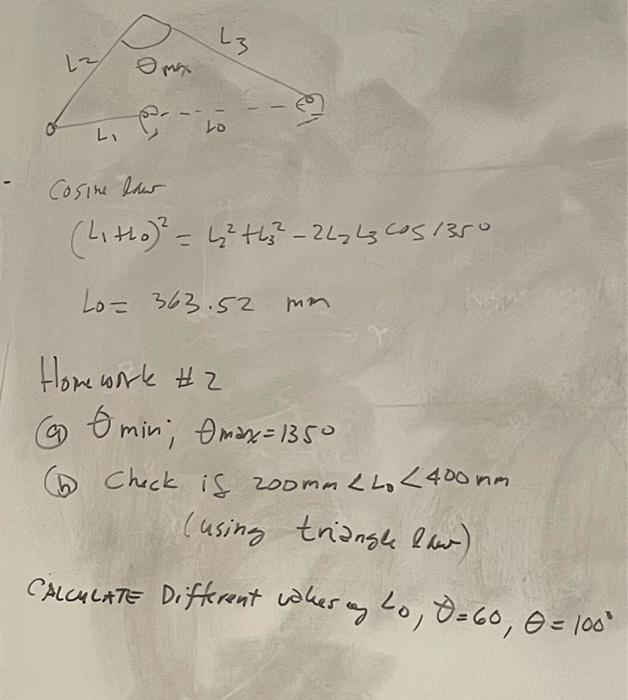 L2
L3
θmax
L1
L0
Cosine law
(L1+L0)² = L2² + L3² - 2L2L3 COS 135°
L0 = 363.52 mm
Homework #2
(a) θmin; θmax=135°
(b) Check if 200mm < L0 < 400mm
(using triangle law)
CALCULATE Different values of L0, θ=60, θ=100°